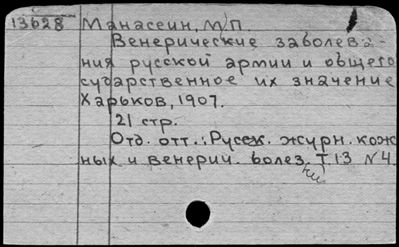 13628 Манассеин, М/П.
Венерические заболева-
ния русской армии и общего
сударственное их значение
Харьков, 1907.
21 стр.
Отд. отт.: Русск. журн. кож
ных и венерич. болез. Т 13 N 4.
ни